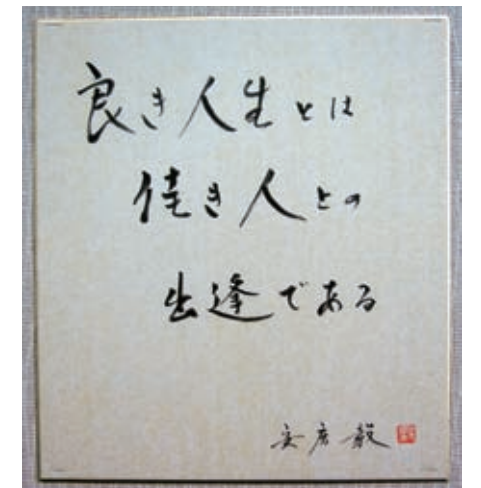 良き人生とは
佳き人との
出逢である
安彦毅